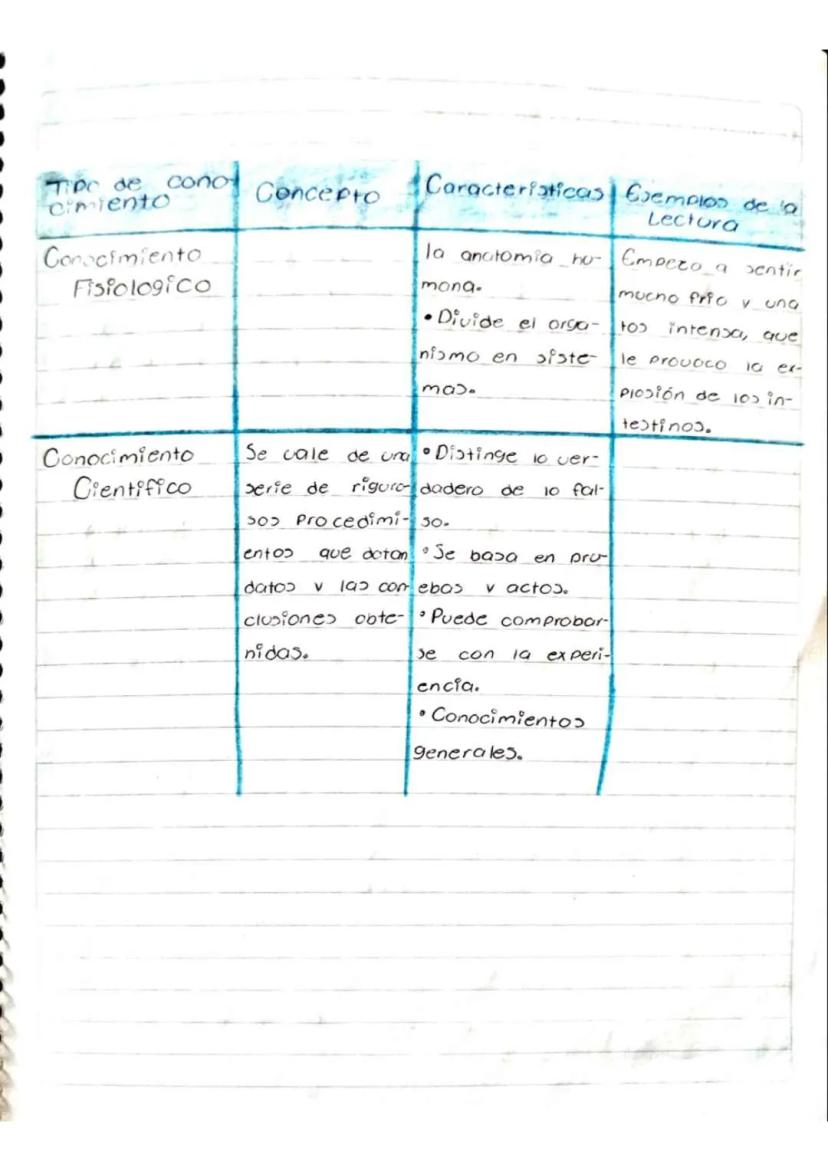 Tipo de cono-
cimiento
Concepto
Características
Ejemplos de la
Lectura
Conocimiento
Fisiologico
la anatomia hu-
mana.
• Divide el orga-
nismo en siste-
mas.
Empezo a sentir
mucho frio y una
tos intensa, que
le provoco la ex-
plosión de los in-
testinos.
Conocimiento
Científico
Se vale de una
serie de riguro-
sos procedimi-
entos que dotan
datos y las con
clusiones obte-
nidas.
• Distinge lo ver-
dadero de lo fal-
so.
• Se basa en pru-
ebas y actos.
• Puede comprobar-
se con la experi-
encía.
• Conocimientos
generales.